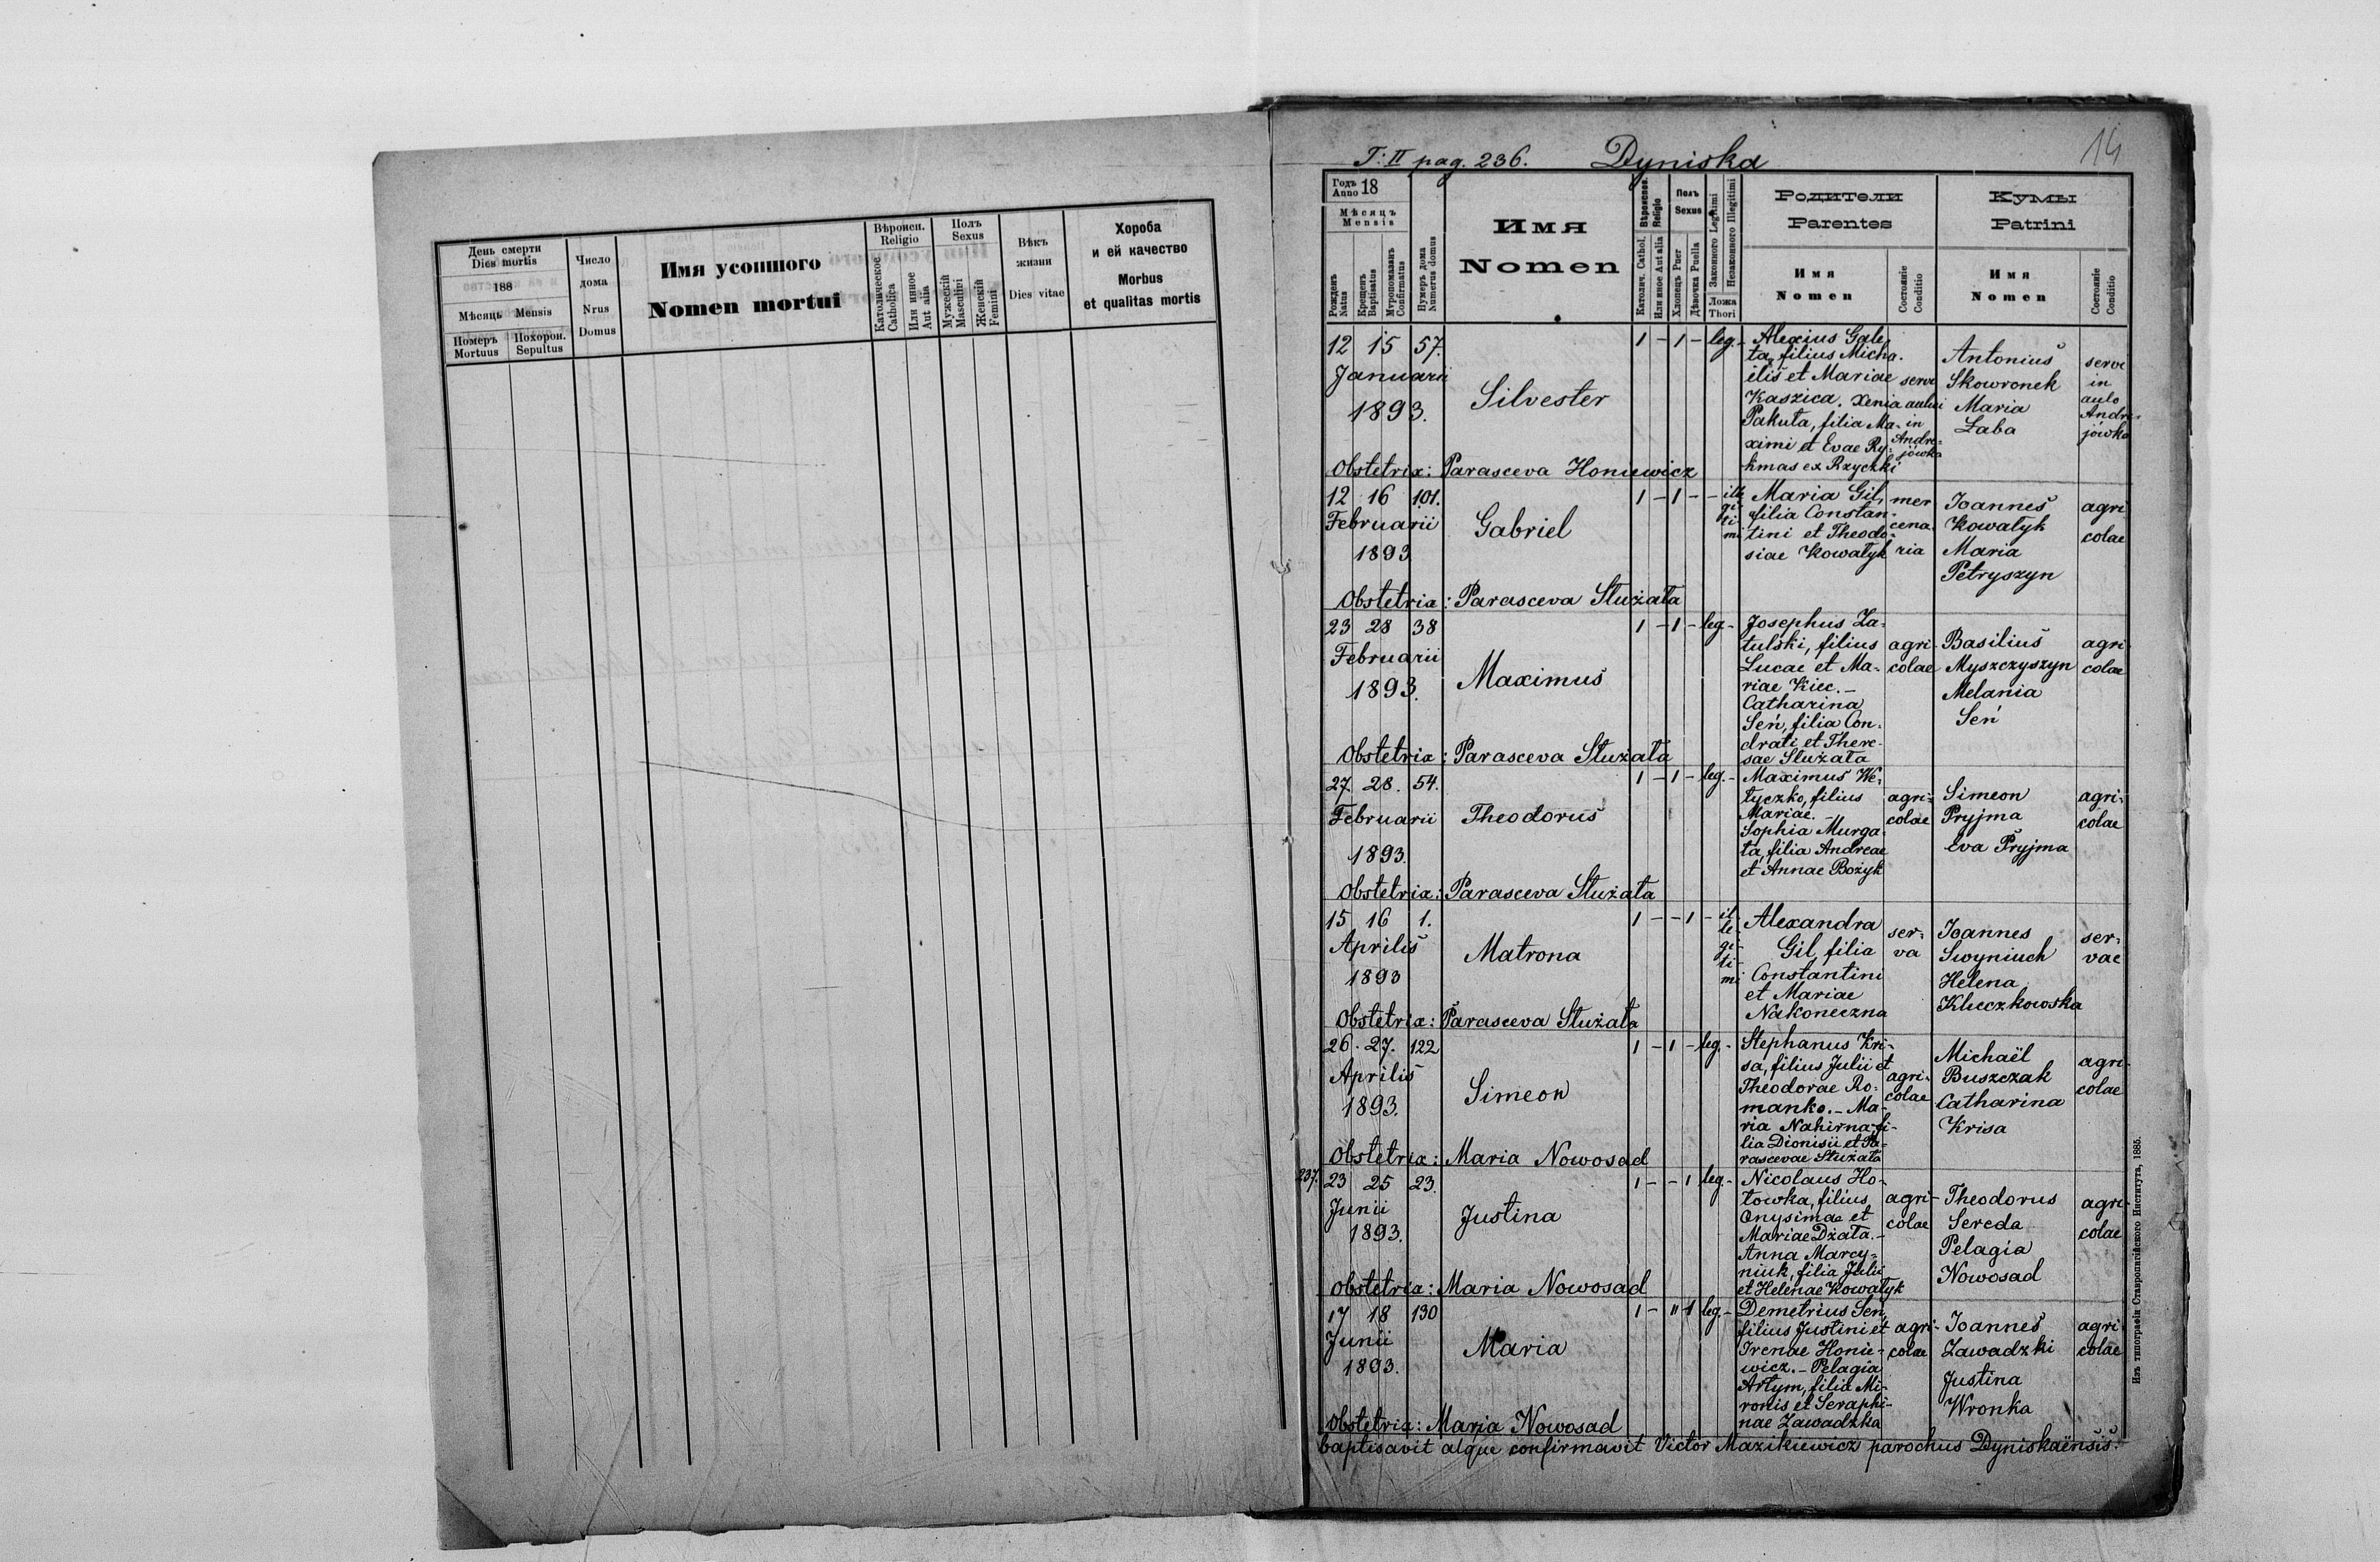 День смерти
Dies mortis
188
Мѣсяць Mensis
Номеръ
Mortuus
Похорон.
Sepultus
Число
дома
Nrus
Domus
Имя усопшого
Nomen mortui
Вѣроисп.
Religio
Католическое
Catholica
Или инное
Aut alia
Полъ
Sexus
Мужескій
Masculini
Женскій
Feminini
Вѣкъ
жизни
Dies vitae
Хороба
и ей качество
Morbus
et qualitas mortis
T: II pag. 236. Dyniska
14
Годъ
Anno 18
Мѣсяцъ
Mensis
Рожденъ
Natus
Крещенъ
Baptisatus
Мѵропомазанъ
Confirmatus
Нумеръ дома
Numerus domus
Имя
Nomen
Вѣроиспов.
Religio
Католич. Cathol.
Или иное Aut alia
Полъ
Sexus
Хлопецъ Puer
Дѣвочка Puella
Законного Legitimi
Незаконного Illegitimi
Ложа
Thori
Родители
Parentes
Имя
Nomen
Состояніе
Conditio
Кумы
Patrini
Имя
Nomen
Состояніе
Conditio
12 15 57. 1 - 1 - leg. -
Januarii
1893.
Silvester
Alexius Gale
ta, filius Micha.
elis et Mariae
Kaszica. Xenia
Pakuta, filia Ma-
ximi et Evae Ry-
kmas ex Rzyczki
servi
aulici
in
Andre-
jówka
Antonius
Skowronek
Maria
Łaba
servi
in
aulo
Andre-
jówka
Obstetrix: Parasceva Honiewicz
12 16 101. 1 - 1 - - ille
gi
ti
mi
Februarii
1893
Gabriel
Maria Gil,
filia Constan-
tini et Theodo-
siae Kowatyk
mer
cena
ria
Joannes
Kowatyk
Maria
Petryszyn
agri
colae
Obstetrix: Parasceva Stużata
23 28 38 1 - 1 - leg. -
Februarii
1893.
Maximus
Josephus Za-
tulski, filius
Lucae et Ma-
riae Kiec. -
Catharina
Seń, filia Con-
drati et There-
sae Stużata
agri-
colae
Basilius
Myszczyszyn
Melania
Seń
agri
colae
Obstetrix: Parasceva Stużata
27. 28. 54. 1 - 1 - leg. -
Februarii
1893.
Theodorus
Maximus We-
tyczko, filius
Mariae. -
Sophia Murga-
ta, filia Andreae
et Annae Bożyk
agri-
colae
Simeon
Pryjma
Eva Pryjma
agri-
colae
Obstetrix: Parasceva Stużata
15 16 1. 1 - - 1 - il-
le-
gi-
ti-
mi
Aprilis
1893
Matrona
Alexandra
Gil, filia
Constantini
et Mariae
Nakoneczna
ser-
va
Joannes
Swyniuch
Helena
Kluczkowska
ser-
vae
Obstetrix: Parasceva Stużata
26. 27. 122 1 - 1 - leg. -
Aprilis
1893.
Simeon
Stephanus Kri-
sa, filius Julii et
Theodorae Ro-
manko. - Ma-
ria Nahirna, fi-
lia Dionisii et Pa-
rascevae Stużata
agri-
colae
Michaël
Buszczak
Catharina
Krisa
agri-
colae
Obstetrix: Maria Nowosad
237. 23 25 23. 1 - - 1 leg. -
Junii
1893.
Justina
Nicolaus Ho-
towka, filius
Onysimae et
Mariae Dżata. -
Anna Marcy-
niuk, filia Julii
et Helenae Kowatyk
agri-
colae
Theodorus
Sereda
Pelagia
Nowosad
agri-
colae
Obstetrix: Maria Nowosad
17 18 130 1 - " 1 leg. -
Junii
1893.
Maria
Demetrius Seń,
filius Justini et
Irenae Honie-
wicz. - Pelagia
Artym, filia Mi-
ronis et Seraphi-
nae Zawadzka
agri-
colae
Joannes
Zawadzki
Justina
Wronka
agri
colae
Obstetrix: Maria Nowosad
baptisavit atque confirmavit Victor Mazikiewicz parochus Dyniskaënsis.
Изъ типографіи Ставропигійского Института, 1885.